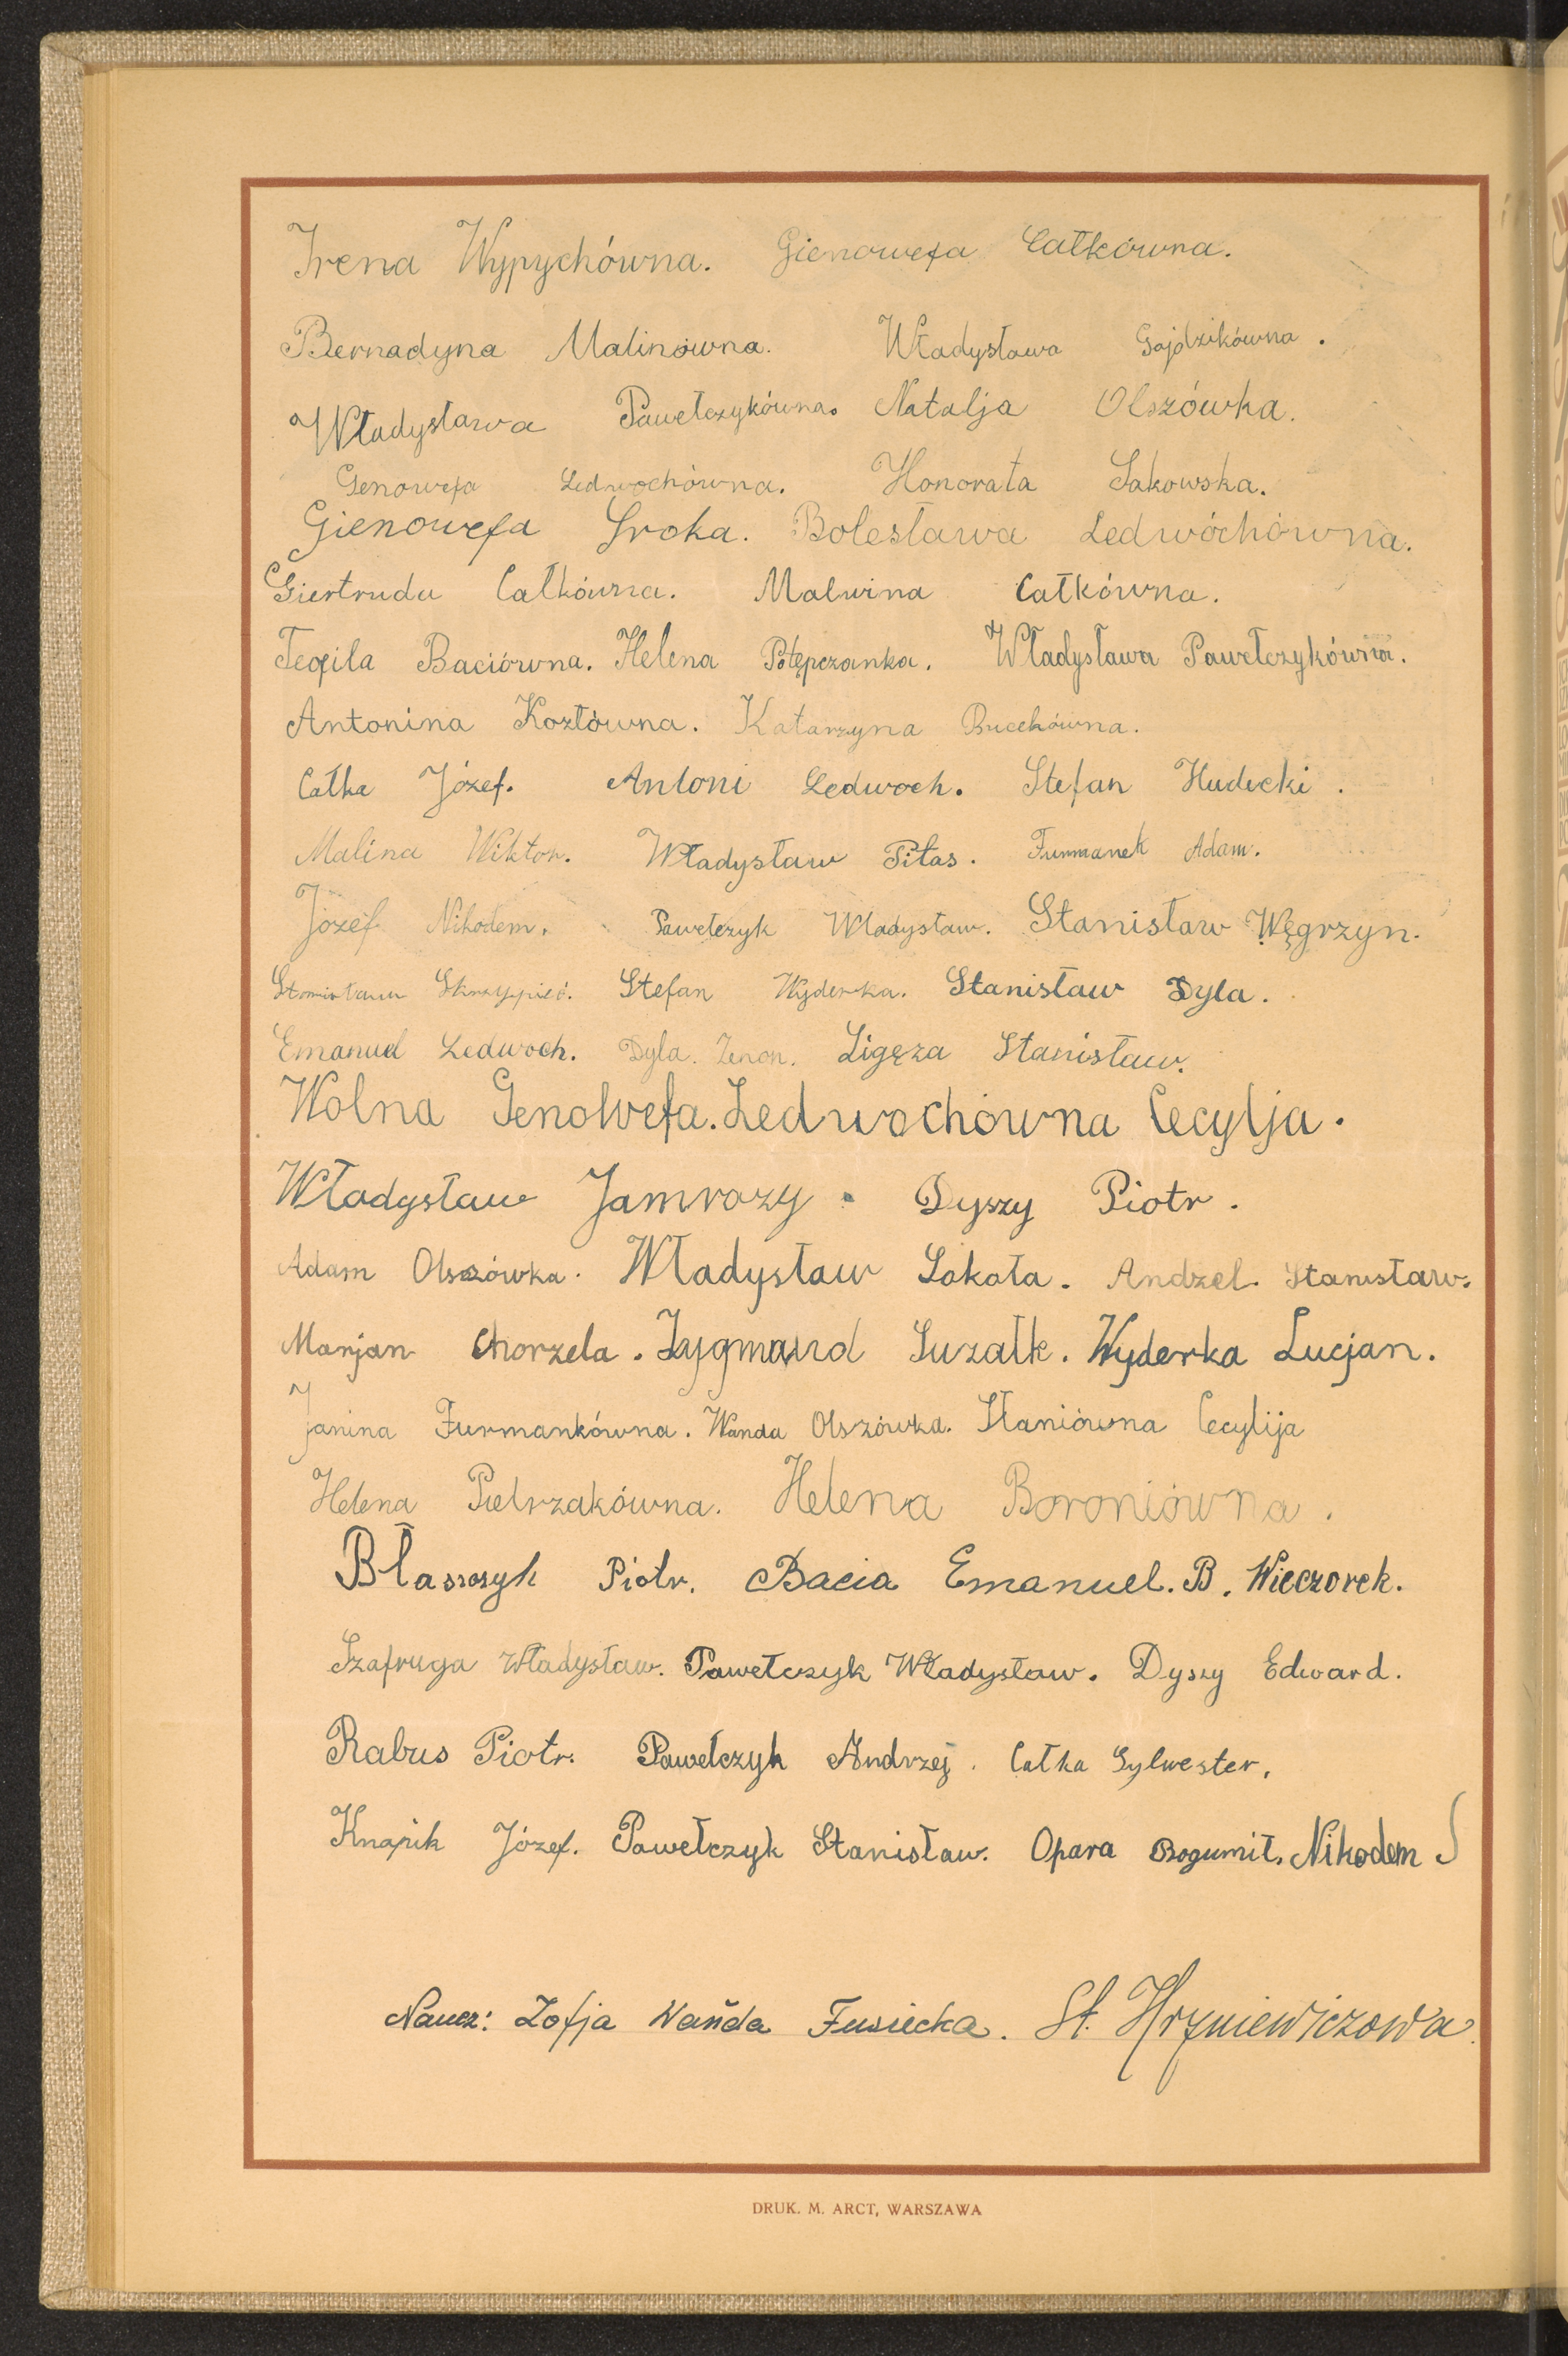 Irena Wypychówna. Gienowefa Całkówna.
Bernadyna Malinówna. Władysława Gajdzikówna.
Władysława Pawełczykówna. Natalja Olszówka.
Genowefa Ledwochówna. Honorata Sakowska.
Gienowefa Sroka. Bolesława Ledwóchówna.
Giertruda Całkówna. Malwina Całkówna.
Teofila Baciówna. Helena Potępczanka. Władysława Pawełczykówna.
Antonina Kozłówna. Katarzyna Bucekówna.
Całka Józef. Antoni Ledwoch. Stefan Hudecki.
Malina Wiktor. Władysław Pitas. Furmanek Adam.
Józef Nikodem. Pawełczyk Władysław. Stanisław Węgrzyn.
Stanisław Skrzypiec. Stefan Wyderka. Stanisław Dyla.
Emanuel Ledwoch. Dyla. Zenon. Ligęza Stanisław.
Wolna Genowefa. Ledwochówna Cecylja.
Władysław Jamrozy. Dyszy Piotr.
Adam Olszówka. Władysław Sokoła. Andzel. Stanisław.
Marjan Chorzela. Zygmund Suzalk. Wyderka Lucjan.
Janina Furmankówna. Wanda Olszówka. Staniówna Cecylija
Helena Pietrzakówna. Helena Boroniówna.
Błaszczyk Piotr. Bacia Emanuel. B. Wieczorek.
Szafruga Władysław. Pawełczyk Władysław. Dyszy Edward.
Rabus Piotr. Pawełczyk Andrzej. Całka Sylwester.
Knapik Józef. Pawełczyk Stanisław. Opara Bogumił. Nikodem S
Naucz: Zofja Wańda Fusiecka. St. Hryniewiczowa.
DRUK. M. ARCT, WARSZAWA